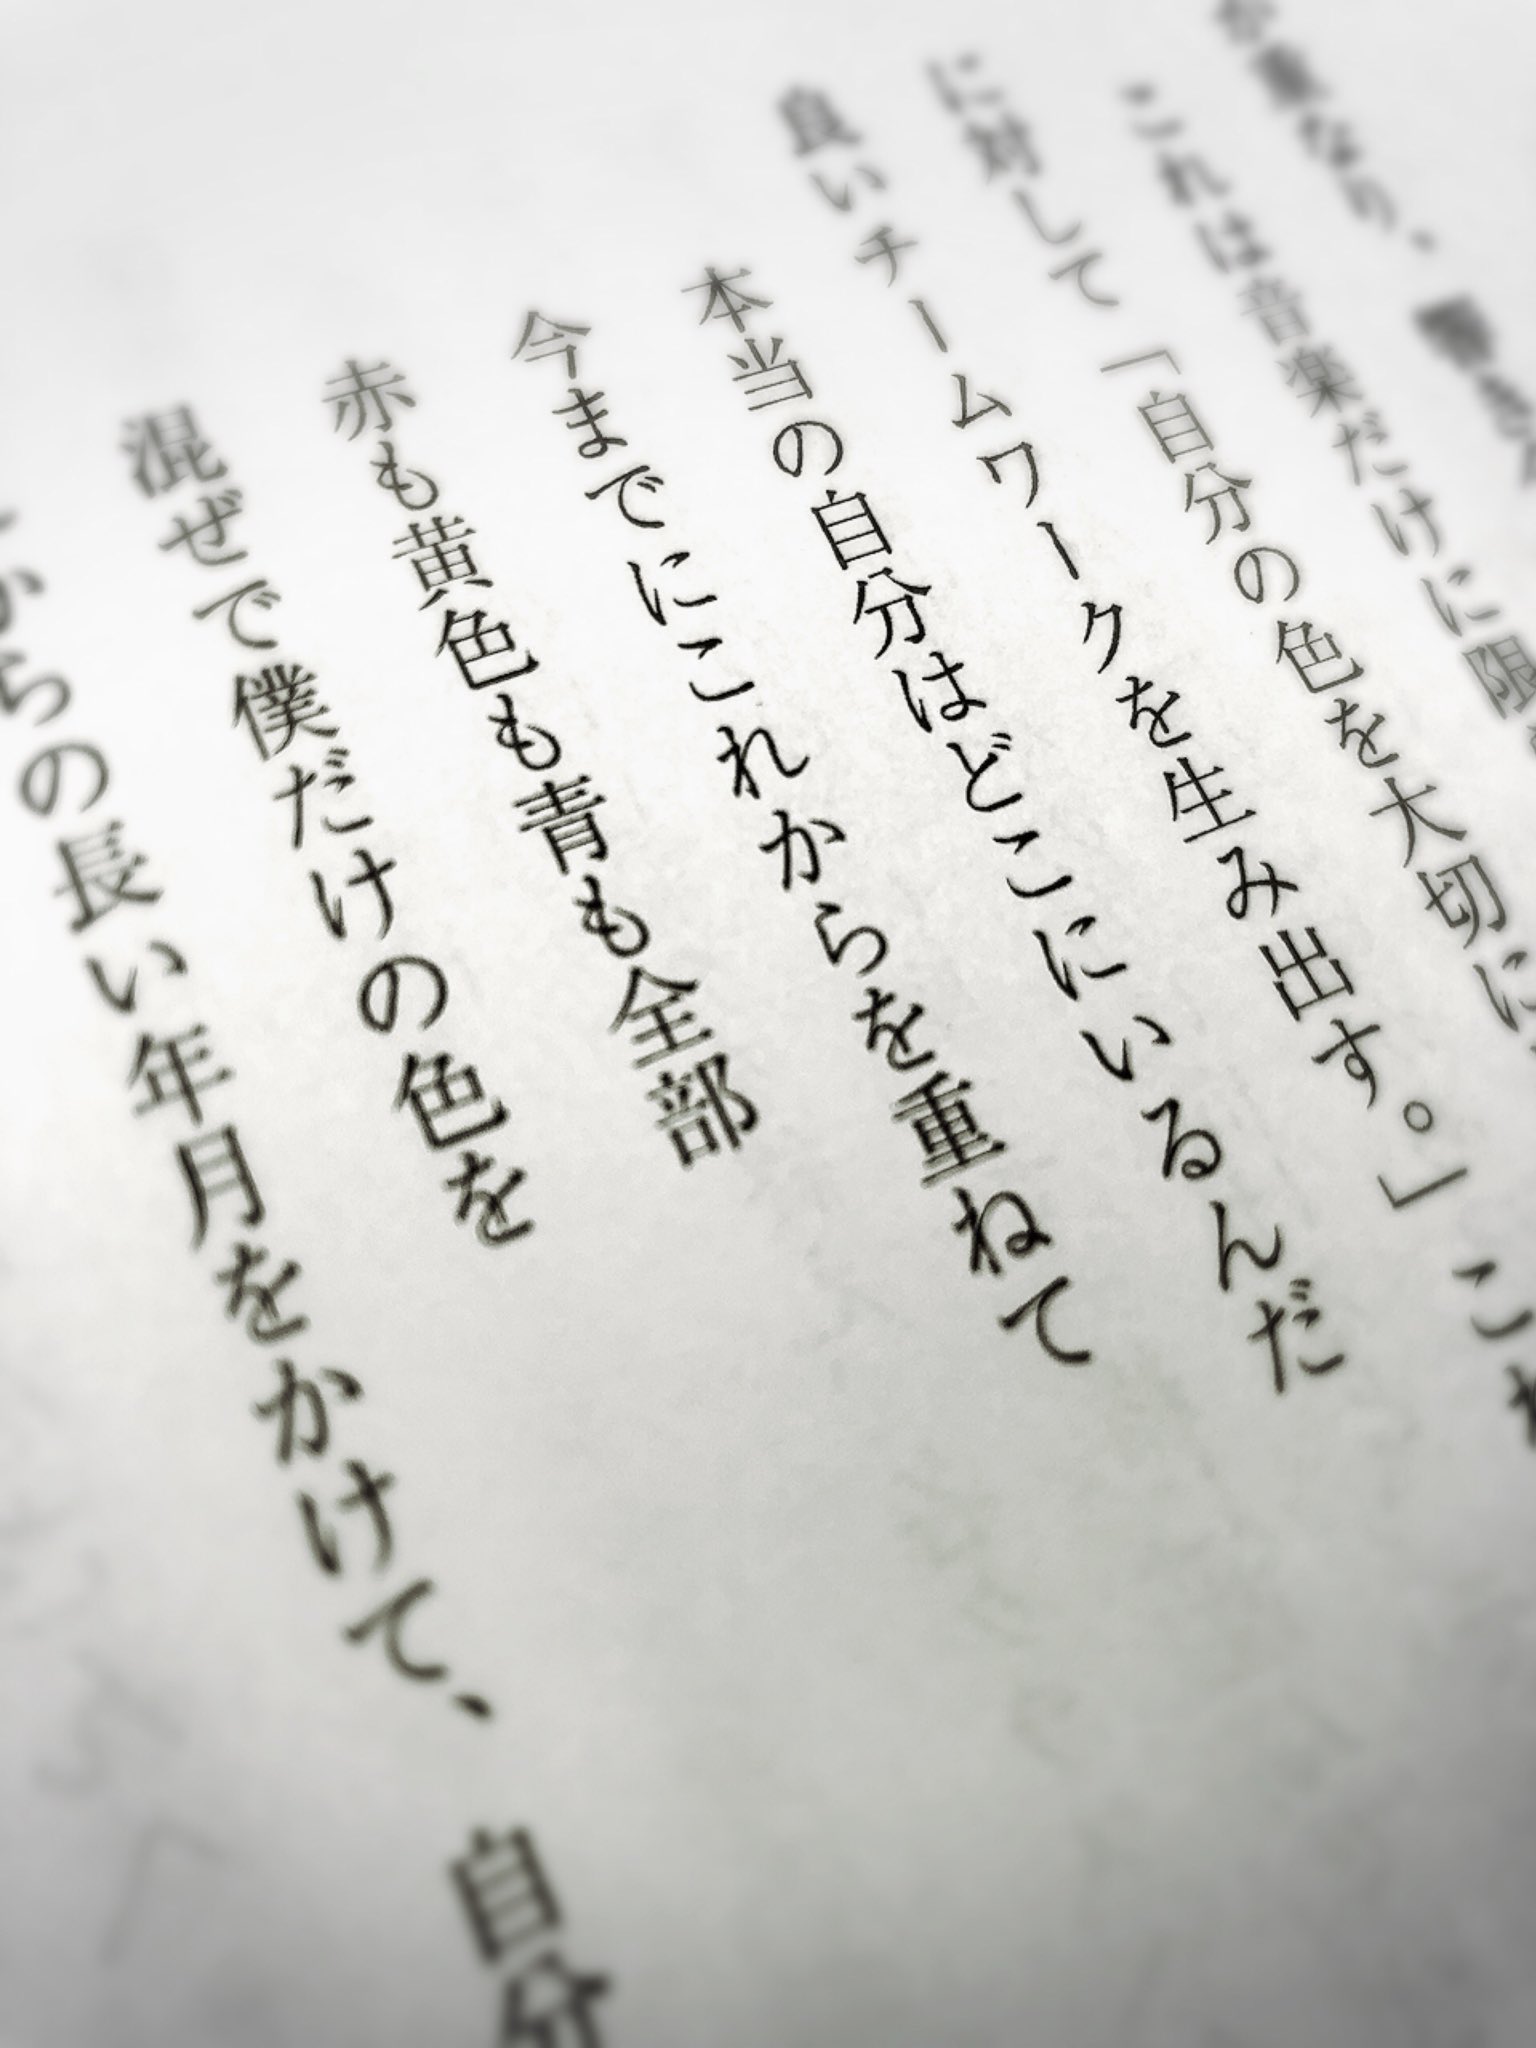 が重なり、響き
これは音楽だけに限
に対して「自分の色を大切に
良いチームワークを生み出す。」これ
本当の自分はどこにいるんだ
今までにこれからを重ねて
赤も黄色も青も全部
混ぜて僕だけの色を
からの長い年月をかけて、自分